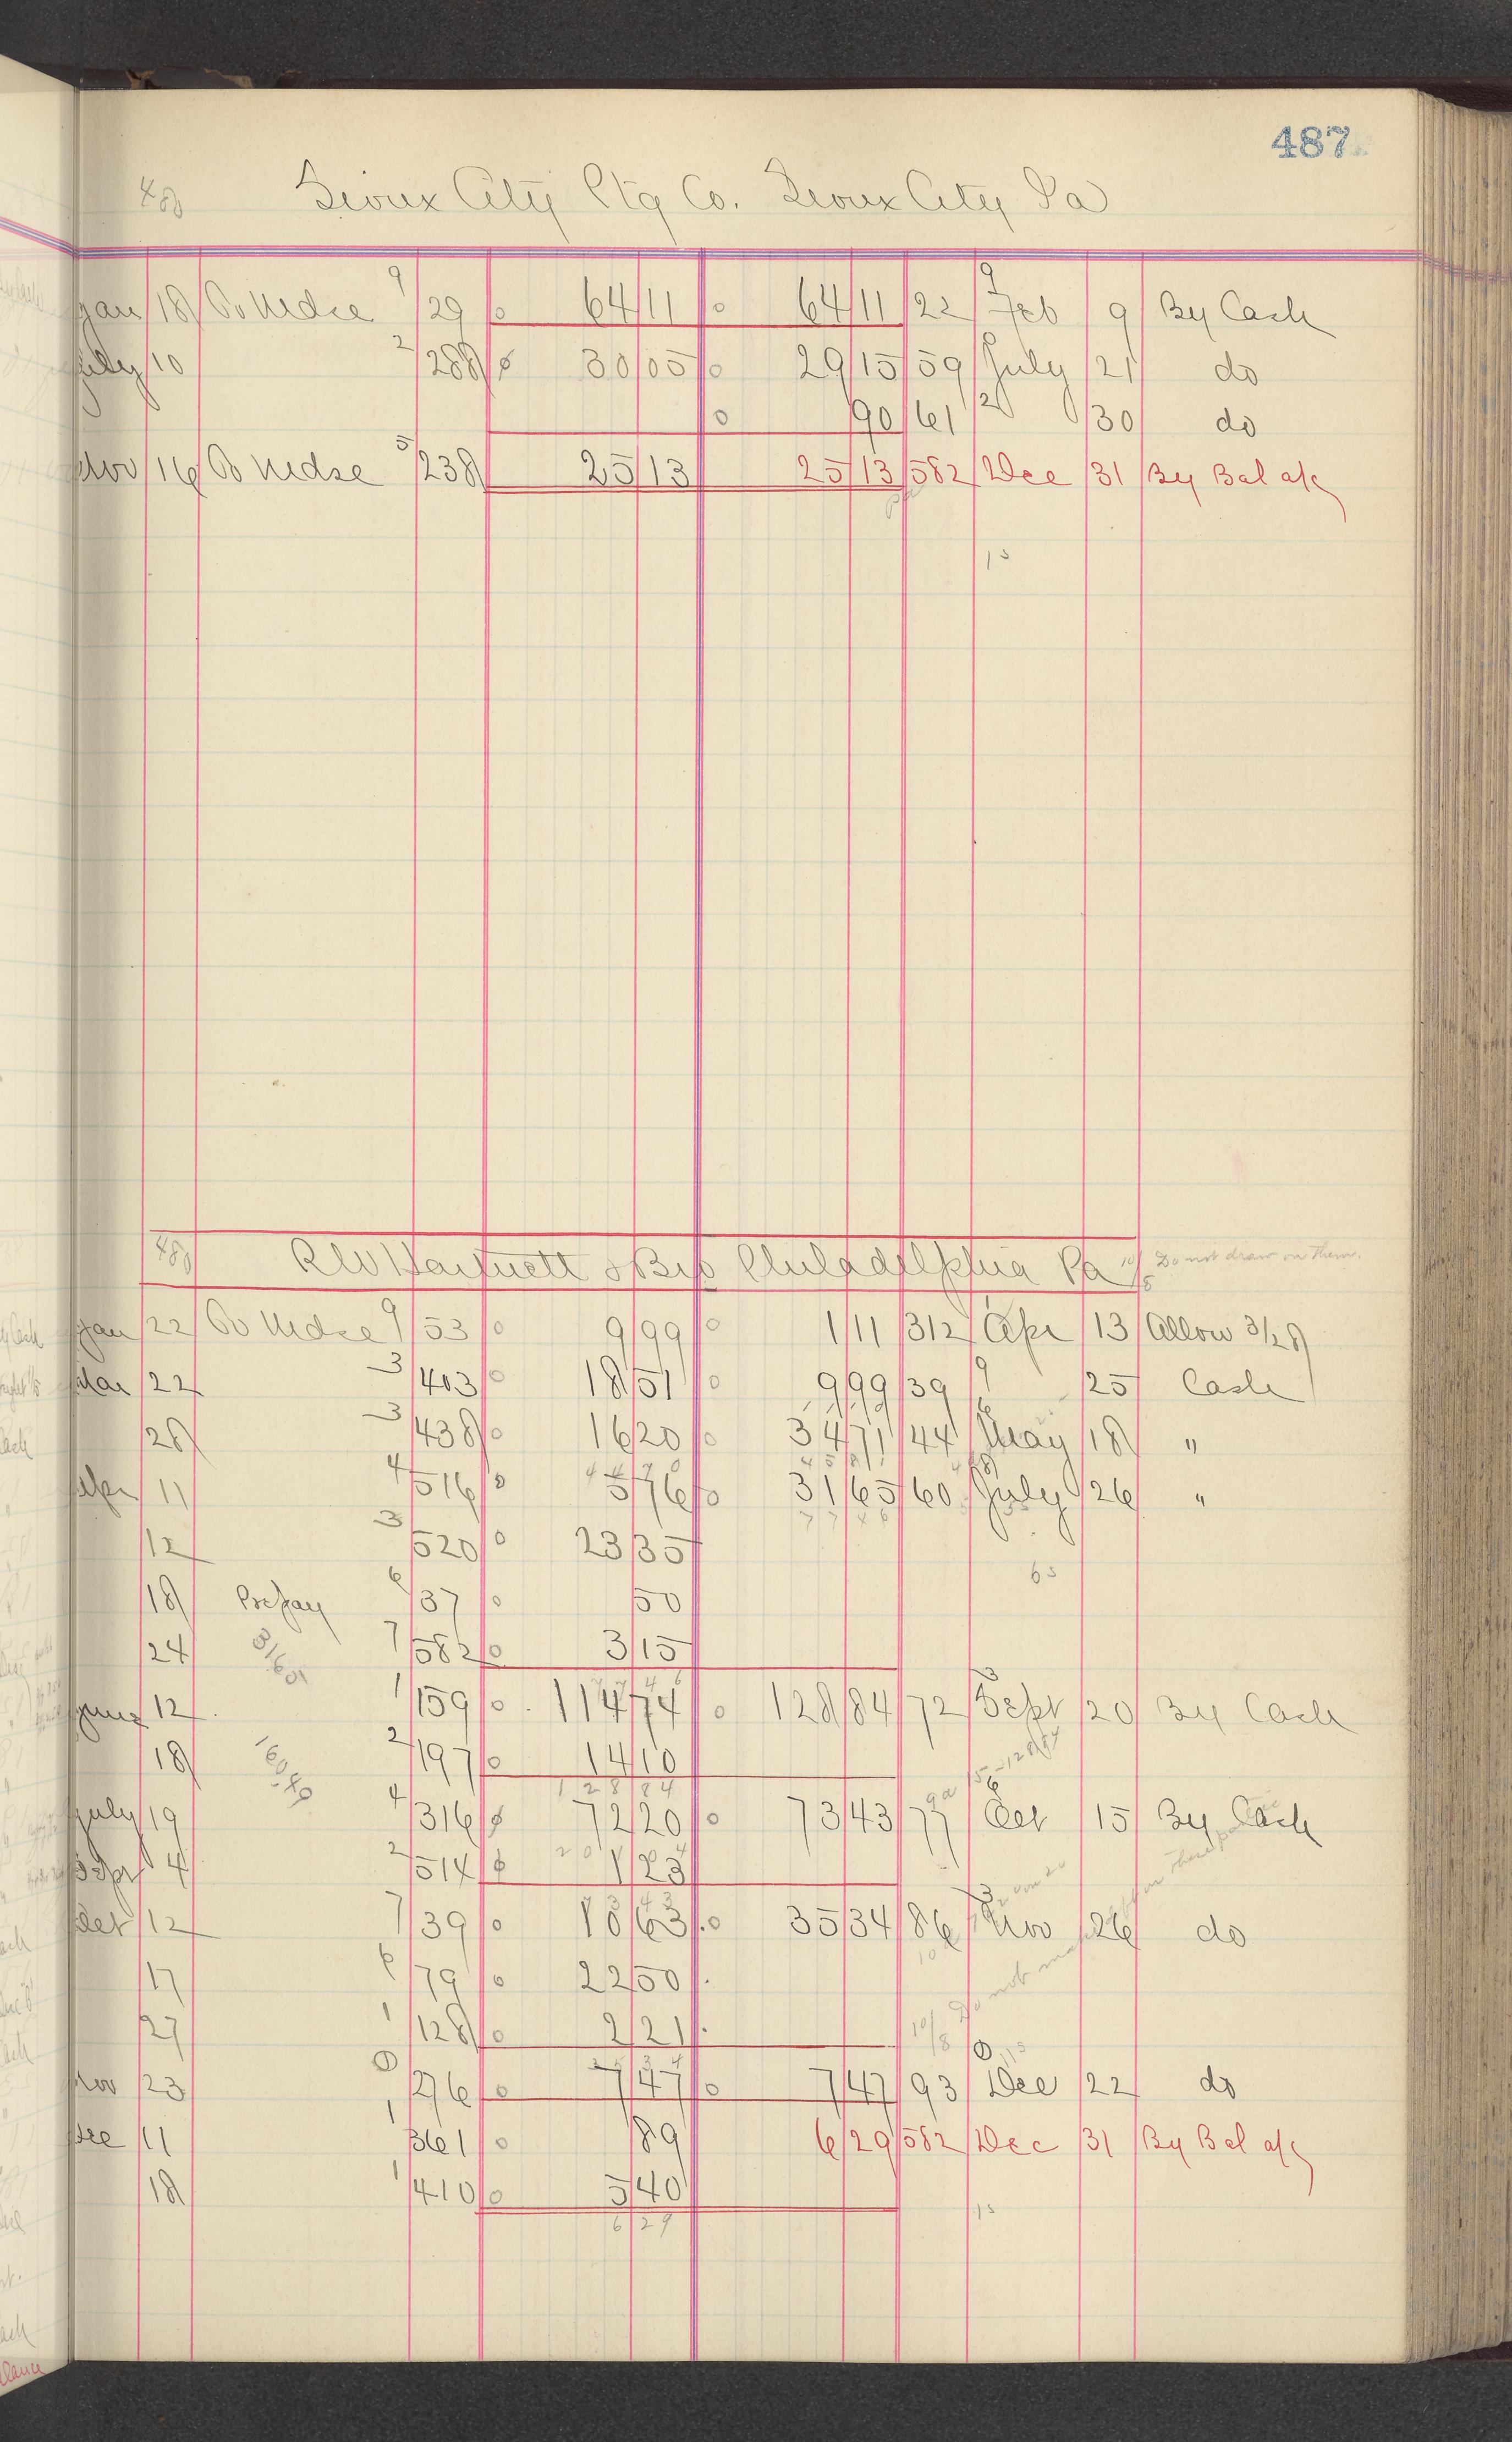 487
480 Sioux City Ptg Co. Sioux City Ia
Jan 18 To Mdse 9/29 0 64 11 0 64 11 22 9 Feb 9 By Cash
July 10 2/288 0 30 05 0 29 15 59 July 21 do
0 90 61 2 30 do
Nov 16 To Mdse 5/238 25 13 25 13 582 Dec 31 By Bal a/c
15
480 R W Hartnett & Bro Philadelphia Pa 10/8 Do not draw on them.
Jan 22 To Mdse 9/53 0 9 99 0 1 11 312 1 Apr 13 Allow 3/28
Mar 22 3/403 0 18 51 0 9 99 39 9 25 Cash
28 3/438 0 16 20 0 34 71 44 May 18 "
Apr 11 4/516 0 5 76 0 31 65 60 July 26 "
12 3/520 0 23 35
18 Prepay 6/37 0 50
65
24 3165 7/582 0 3 15
June 12 1/159 0 114 74 0 128 84 72 3 Sept 20 By Cash
18 160.49 2/197 0 14 10
128 84
July 19 4/316 0 72 20 0 73 43 77 6 Oct 15 By Cash
Sept 4 2/514 0 1 23
Oct 12 7/39 0 10 63 0 35 34 86 3 Nov 26 do
17 6/79 0 22 50
27 1/128 0 2 21
10/8 Do not
Nov 23 0/276 0 7 47 0 7 47 93 Dec 22 do
Dec 11 1/361 0 89 6 29 582 Dec 31 By Bal a/c
18 1/410 0 5 40
6 29
15